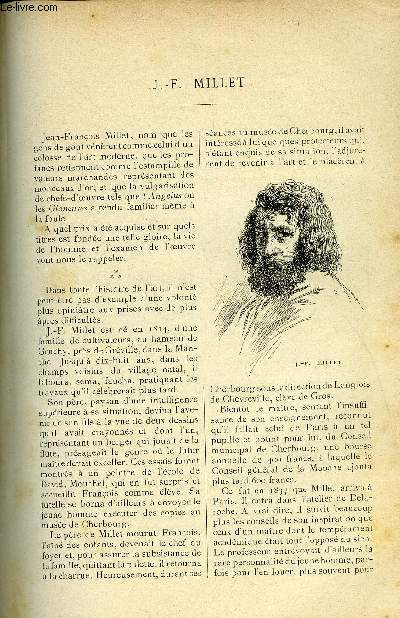 Le-livre.com
J.-F. MILLET
Jean-François Millet, nom que les
gens de goût vénèrent comme celui d'un
colosse de l'art moderne, que les pro-
fanes retiennent comme l'estampille de
valeurs marchandes représentant des
monceaux d'or, et que la vulgarisation
de chefs-d'œuvre tels que l'Angelus ou
les Glaneuses a rendu familier même à
la foule.
A quel prix a été acquise et sur quels
titres est fondée une telle gloire, la vie
de l'homme et l'examen de l'œuvre
vont nous le rappeler.
Dans toute l'histoire de l'art, il n'est
peut-être pas d'exemple d'une volonté
plus opiniâtre aux prises avec de plus
âpres difficultés.
J.-F. Millet est né en 1814, d'une
famille de cultivateurs, au hameau de
Gruchy, près de Gréville, dans la Man-
che. Jusqu'à dix-huit ans, dans les
champs voisins du village natal, il
laboura, sema, faucha, pratiquant les
travaux qu'il célébrerait plus tard.
Son père, paysan d'une intelligence
supérieure à sa situation, devina l'ave-
nir de son fils à la vue de deux dessins
qu'il avait crayonnés et dont l'un,
représentant un berger qui jouait de la
flûte, présageait le genre où le futur
maître devait exceller. Ces essais furent
montrés à un peintre de l'école de
David, Mouchel, qui en fut surpris et
accueillit François comme élève. Sa
tutelle se borna d'ailleurs à envoyer le
jeune homme exécuter des copies au
musée de Cherbourg.
Le père de Millet mourut. François,
l'aîné des enfants, devenait le chef du
foyer et, pour assurer la subsistance de
la famille, quittant la palette, il retourna
à la charrue. Heureusement, durant ses
séances au musée de Cherbourg, il avait
intéressé à lui quelques protecteurs qui,
s'étant enquis de sa situation, l'adjurè-
rent de revenir à l'art et le placèrent à
J.-F. MILLET
Cherbourg sous la direction de Langlois
de Chèvreville, élève de Gros.
Bientôt le maître, sentant l'insuffi-
sance de son enseignement, reconnut
qu'il fallait celui de Paris à un tel
pupille et obtint pour lui, du Conseil
municipal de Cherbourg, une bourse
annuelle de 400 francs, à laquelle le
Conseil général de la Manche ajouta
plus tard 600 francs.
Ce fut en 1837 que Millet arriva à
Paris. Il entra dans l'atelier de Dela-
roche. A vrai dire, il suivit beaucoup
plus les conseils de son inspiration que
ceux d'un maître dont le tempérament
académique était tout l'opposé du sien.
Le professeur entrevoyait d'ailleurs la
rare personnalité du jeune homme, par-
fois pour l'en louer, plus souvent pour